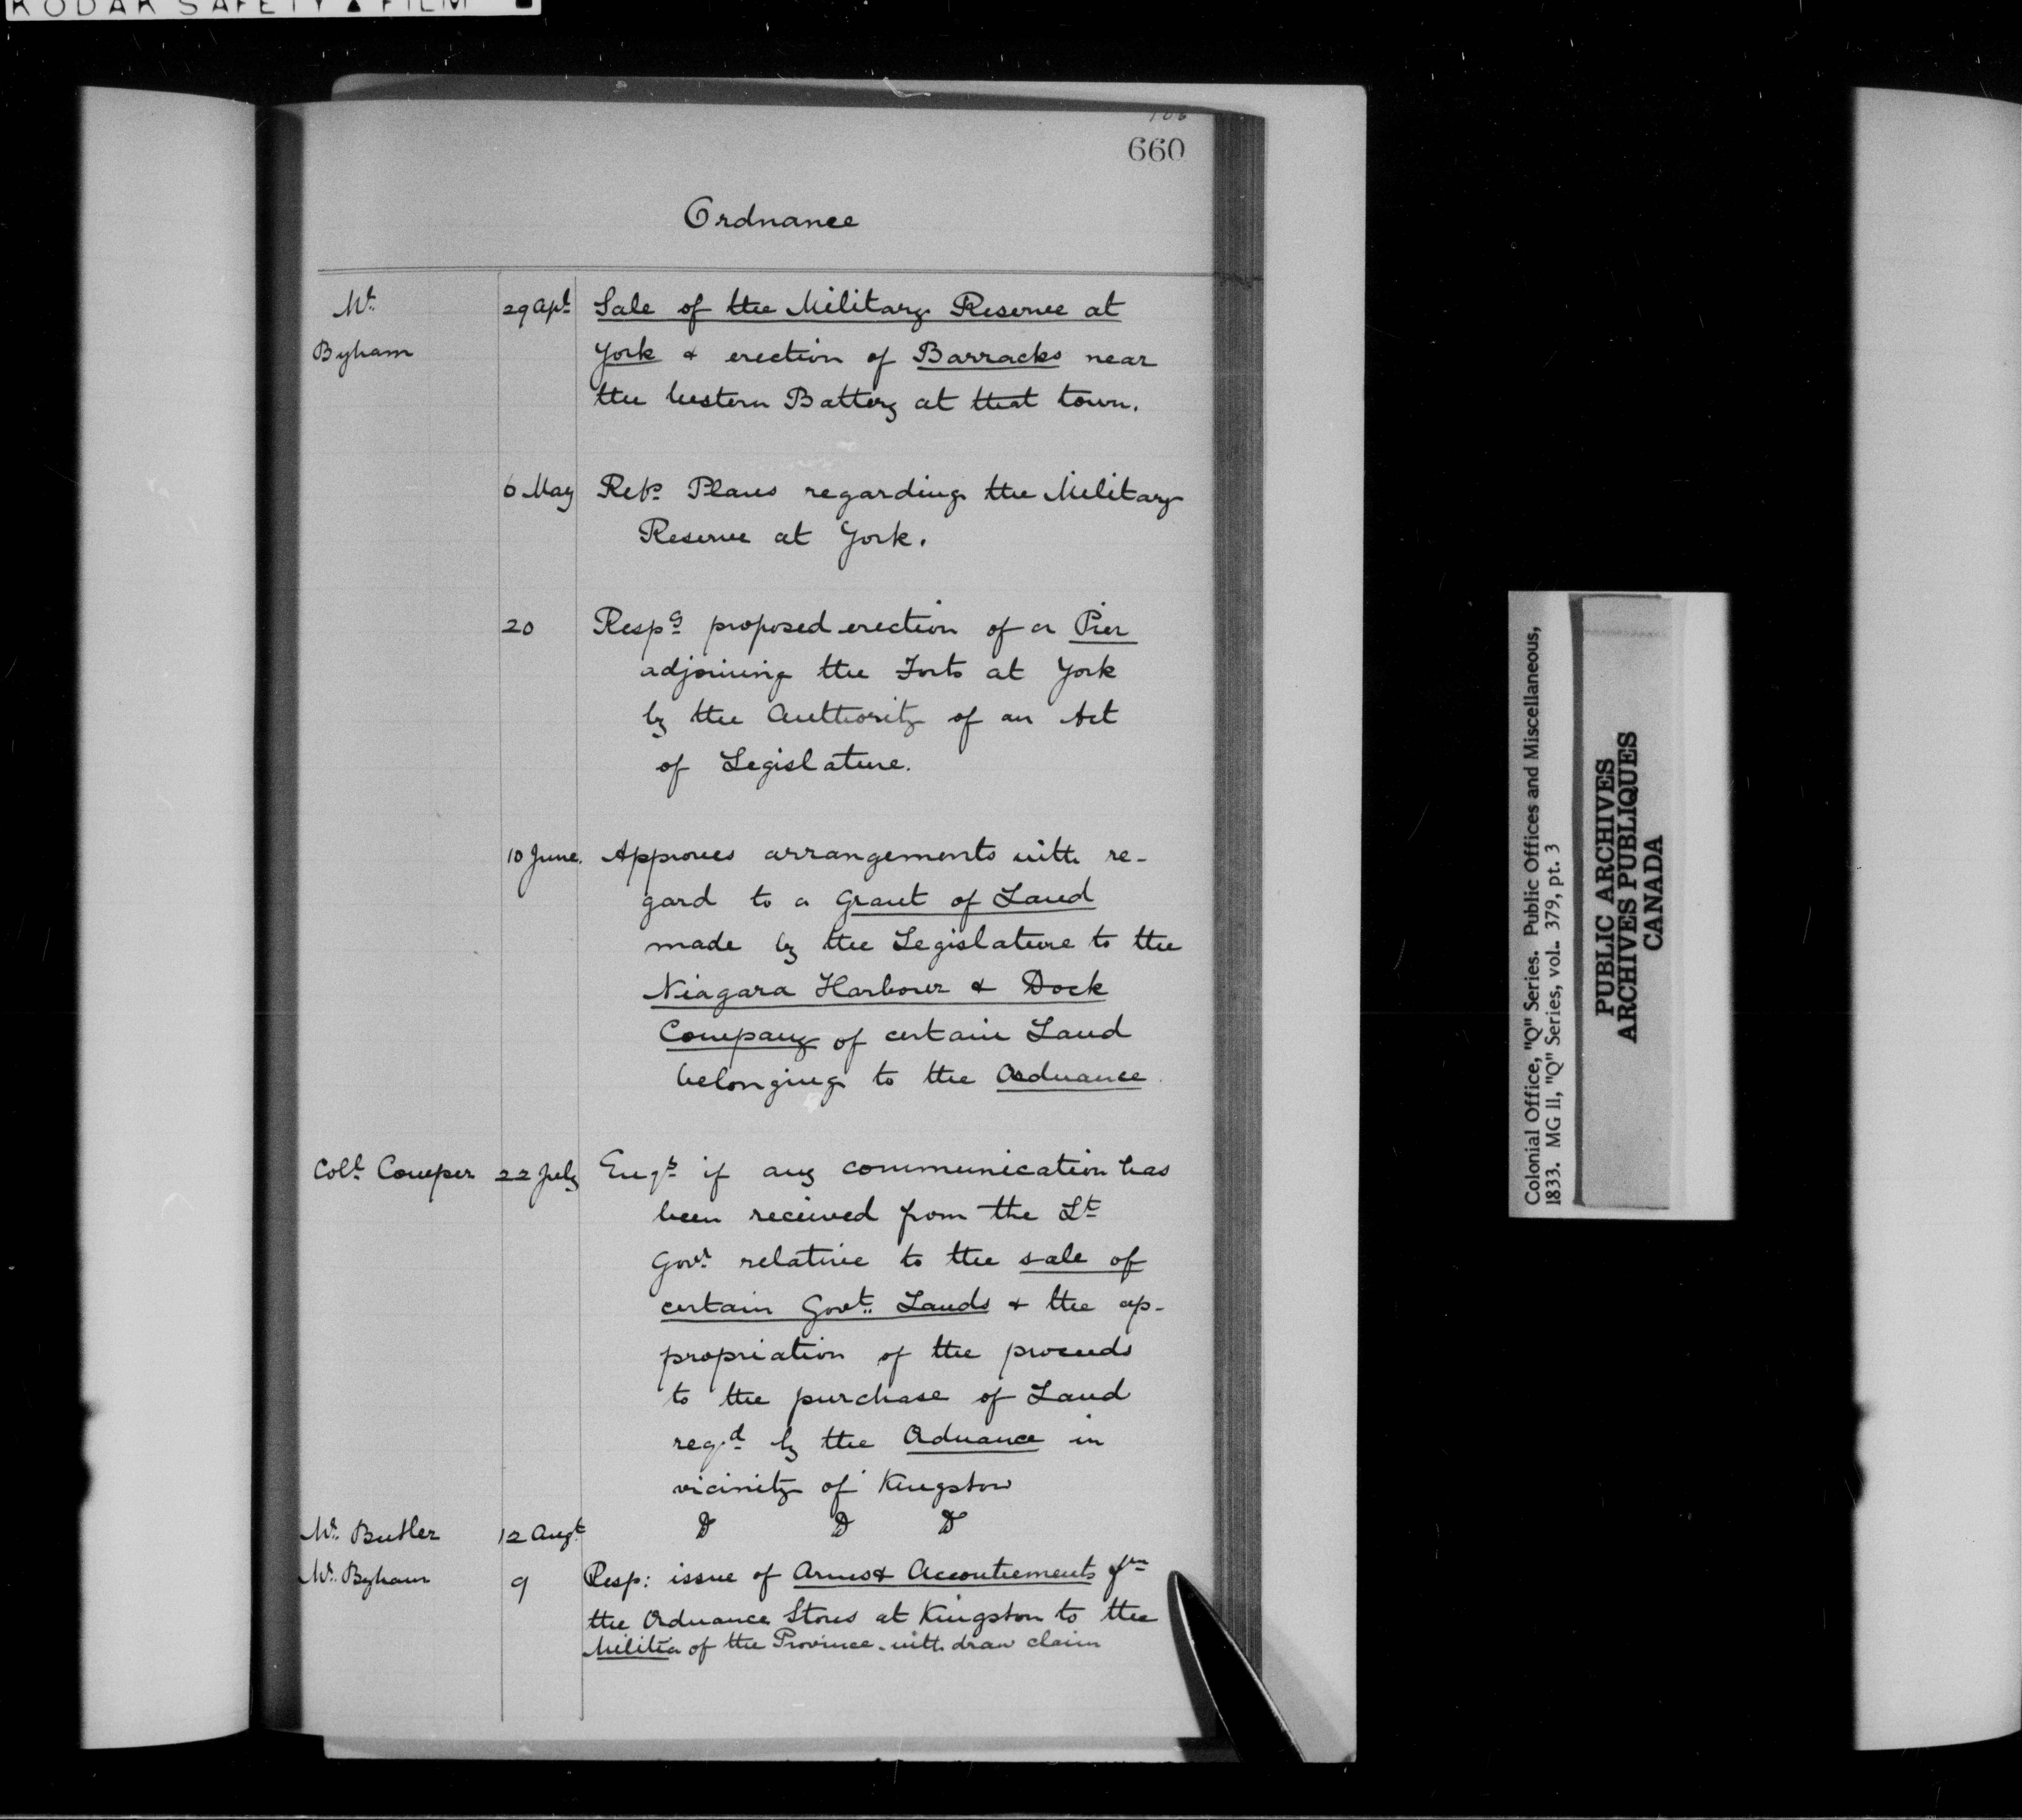 KODAK SAFETY ▲ FILM
106
660
Ordnance
Mr. 29 Apl. Sale of the Military Reserve at
Byham York & erection of Barracks near
the western Battery at that town.
6 May Retg. Plans regarding the Military
Reserve at York.
20 Respg. proposed erection of a Pier
adjoining the Forts at York
by the Authority of an Act
of Legislature.
10 June. Approves arrangements with re-
gard to a Grant of Land
made by the Legislature to the
Niagara Harbour & Dock
Company of certain Land
belonging to the Ordnance.
Coll. Couper 22 July Enqs. if any communication has
been received from the Lt.
Govr. relative to the sale of
certain Govt. Lands & the ap-
propriation of the proceeds
to the purchase of Land
reqd. by the Ordnance in
vicinity of Kingston
Mr. Butler 12 Augt. Do Do Do
Mr. Byham 9 Resp: issue of Arms & Accoutrements fm
the Ordnance Stores at Kingston to the
Militia of the Province. withdraw claim
Colonial Office, "Q" Series. Public Offices and Miscellaneous,
1833. MG 11, "Q" Series, vol. 379, pt. 3
PUBLIC ARCHIVES
ARCHIVES PUBLIQUES
CANADA